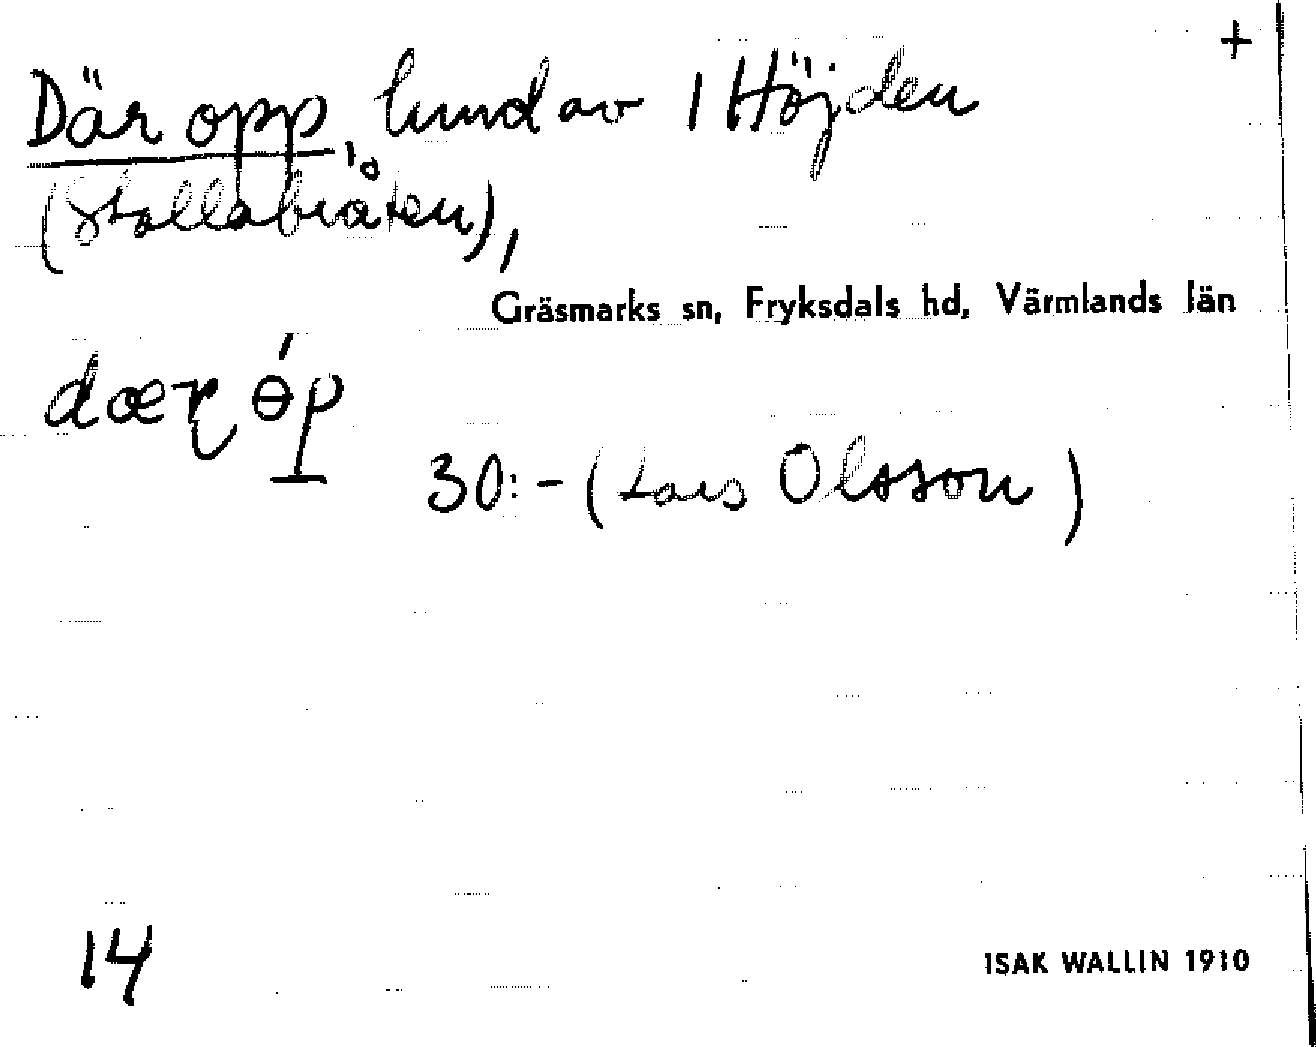 +
Där opp, hmd av 1 Höjden
(Stallabråten),
Gräsmarks sn, Fryksdals hd, Värmlands län
dæɽ ɵ́p
30:- (Lars Olsson)
14
ISAK WALLIN 1910